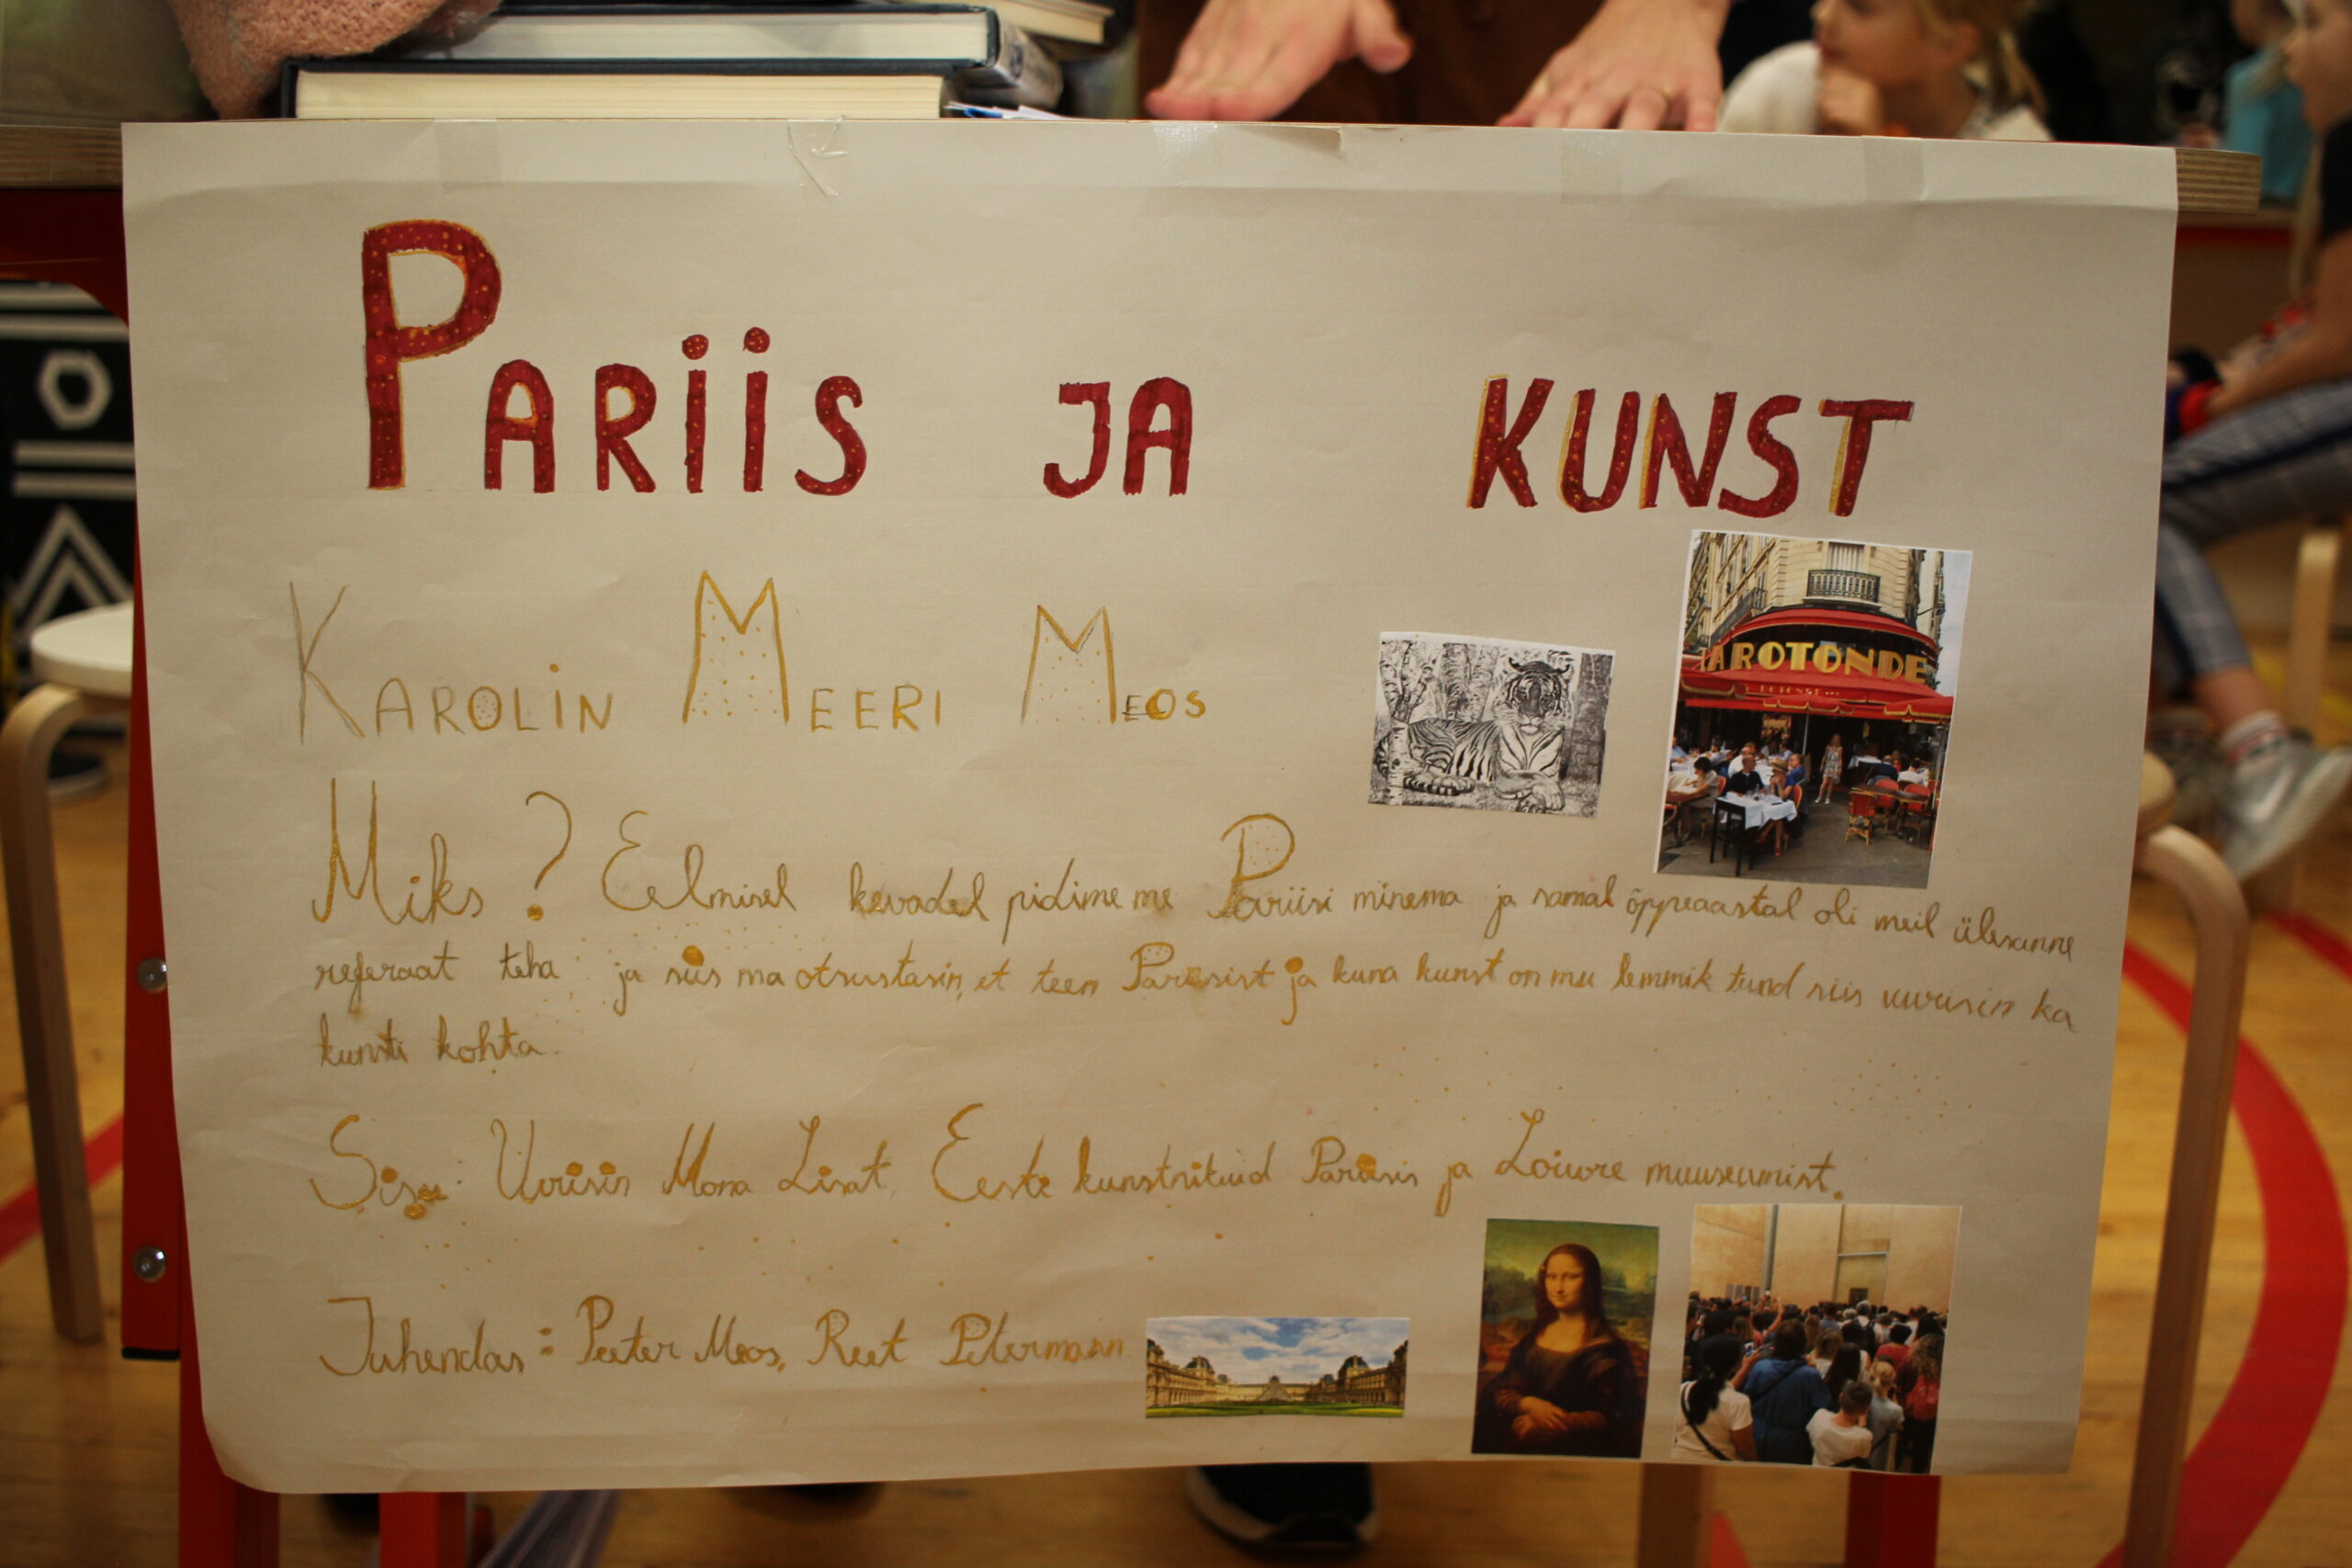 PARIIS JA KUNST
KAROLIN MEERI MEOS
LA ROTONDE
ROTONDE
Miks? Eelmisel kevadel pidime me Pariisi minema ja samal õppeaastal oli meil ülesanne
referaat teha ja siis ma otsustasin, et teen Pariisist ja kuna kunst on mu lemmik tund siis uurisin ka
kunsti kohta.
Sisu: Uurisin Mona Lisat, Eeste kunstnikuid Pariisis ja Loiuvre muuseumist.
Juhendas: Peeter Meos, Reet Petermann